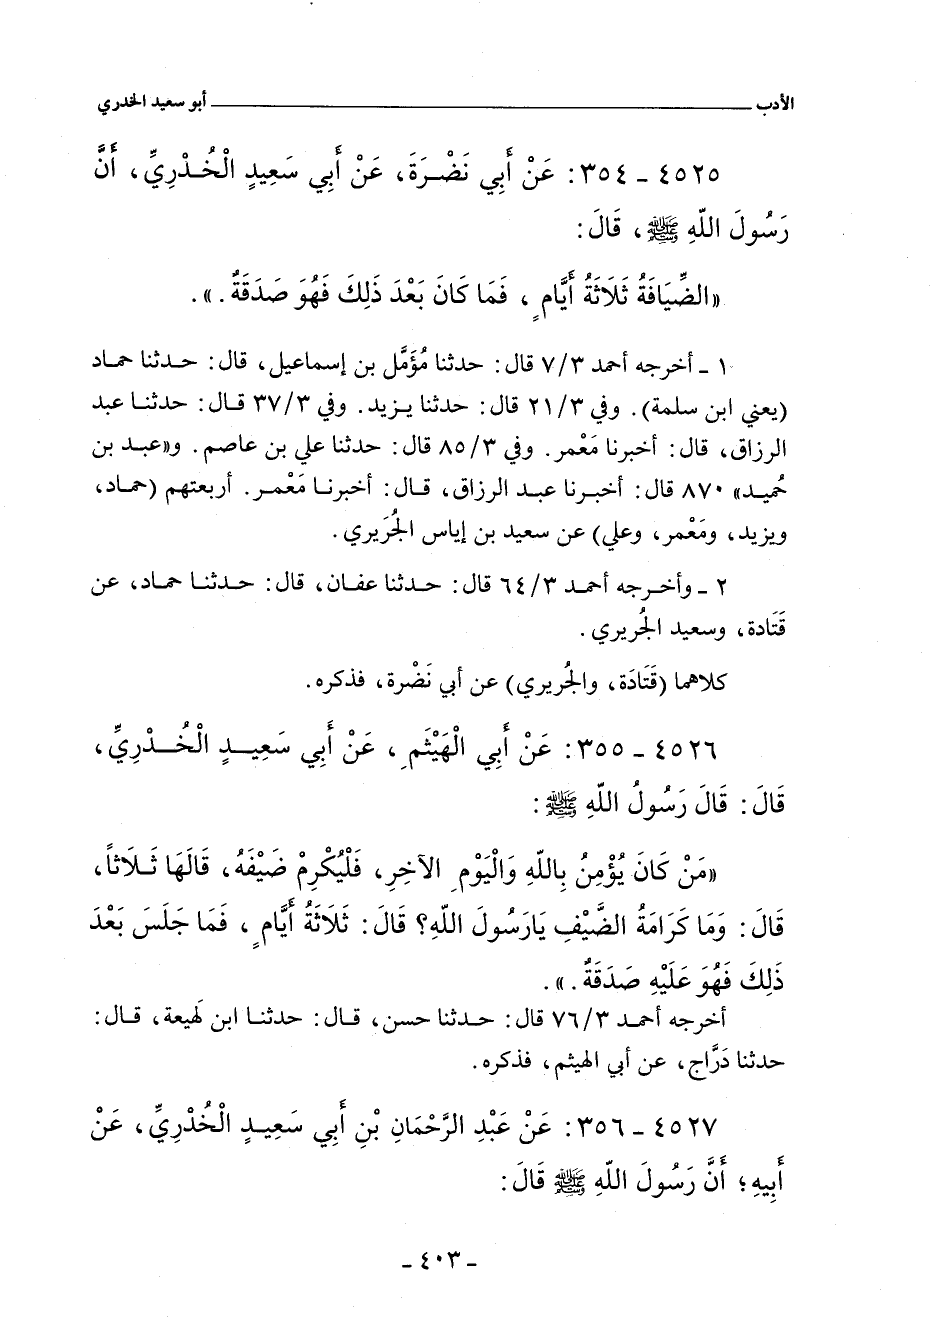 الأدب ــــــ أبو سعيد الخدري
٤٥٢٥ ـ ٣٥٤: عَنْ أَبِي نَضْرَةَ، عَنْ أَبِي سَعِيدٍ الْخُدْرِيِّ، أَنَّ
رَسُولَ اللّهِ ﷺ، قَالَ:
«الضِّيَافَةُ ثَلَاثَةُ أَيَّامٍ، فَمَا كَانَ بَعْدَ ذَلِكَ فَهُوَ صَدَقَةٌ.».
١ ـ أخرجه أحمد ٧/٣ قال: حدثنا مُؤَمَّل بن إسماعيل، قال: حدثنا حماد
(يعني ابن سلمة). وفي ٢١/٣ قال: حدثنا يزيد. وفي ٣٧/٣ قال: حدثنا عبد
الرزاق، قال: أخبرنا مَعْمر. وفي ٨٥/٣ قال: حدثنا علي بن عاصم. و«عبد بن
حُميد» ٨٧٠ قال: أخبرنا عبد الرزاق، قال: أخبرنا مَعْمر. أربعتهم (حماد،
ويزيد، ومَعْمر، وعلي) عن سعيد بن إياس الجُرَيري.
٢ ـ وأخرجه أحمد ٦٤/٣ قال: حدثنا عفان، قال: حدثنا حماد، عن
قَتَادة، وسعيد الجُريري.
كلاهما (قَتَادَة، والجُريري) عن أبي نَضْرة، فذكره.
٤٥٢٦ ـ ٣٥٥: عَنْ أَبِي الْهَيْثَمِ، عَنْ أَبِي سَعِيدٍ الْخُدْرِيِّ،
قَالَ: قَالَ رَسُولُ اللّهِ ﷺ:
«مَنْ كَانَ يُؤْمِنُ بِاللّهِ وَالْيَوْمِ الآخِرِ، فَلْيُكْرِمْ ضَيْفَهُ، قَالَهَا ثَلَاثاً،
قَالَ: وَمَا كَرَامَةُ الضَّيْفِ يَارَسُولَ اللّهِ؟ قَالَ: ثَلَاثَةُ أَيَّامٍ، فَمَا جَلَسَ بَعْدَ
ذَلِكَ فَهُوَ عَلَيْهِ صَدَقَةٌ.».
أخرجه أحمد ٧٦/٣ قال: حدثنا حسن، قال: حدثنا ابن لَهيعة، قال:
حدثنا دَرَّاج، عن أبي الهيثم، فذكره.
٤٥٢٧ ـ ٣٥٦: عَنْ عَبْدِ الرَّحْمَانِ بْنِ أَبِي سَعِيدٍ الْخُدْرِيِّ، عَنْ
أَبِيهِ؛ أَنَّ رَسُولَ اللّهِ ﷺ قَالَ:
ـ ٤٠٣ ـ